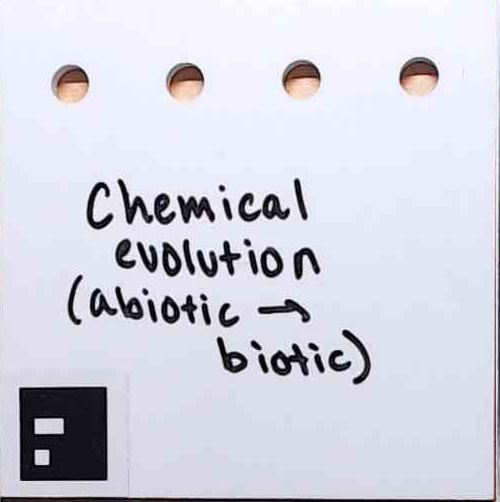 Chemical
evolution
(abiotic →
biotic)